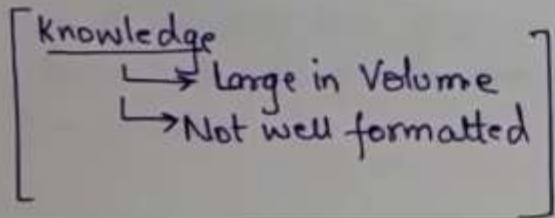 Knowledge
→ Large in Volume
→ Not well formatted